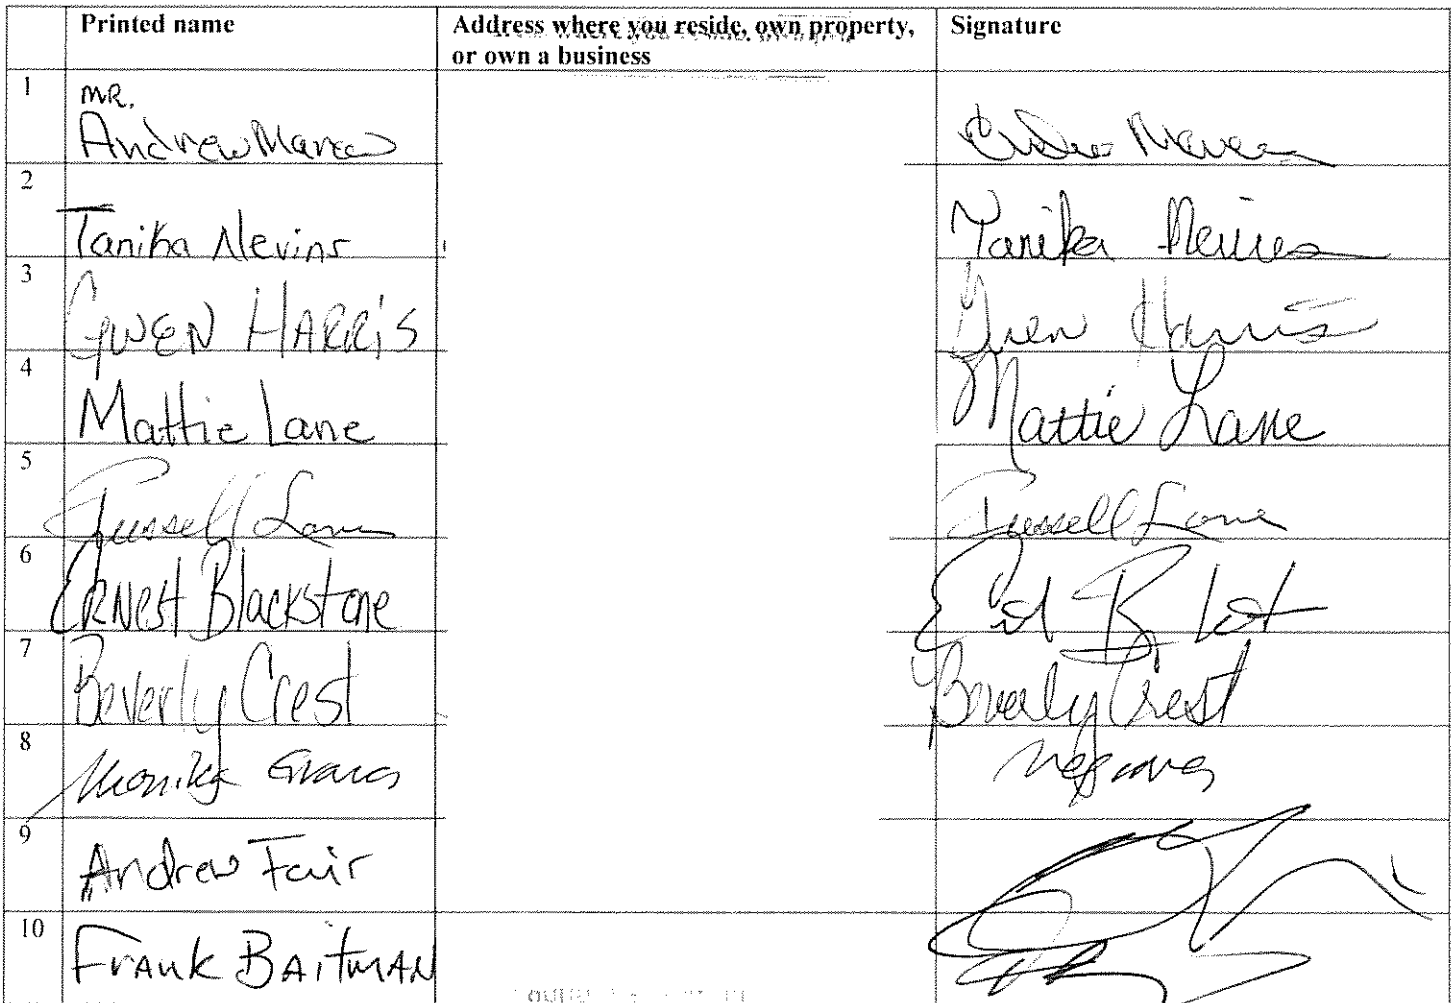 Printed name Address where you reside, own property, or own a business Signature
1 MR. Andrew
2 Tanika Nevins Tanika Nevins
3 GWEN HARRIS Gwen Harris
4 Mattie Lane Mattie Lane
5 Russell Lane Russell Lane
6 ERNEST Blackstone
7 Beverly Crest Beverly Crest
8 Monika Graves
9 Andrew Fair
10 FRANK BAITMAN